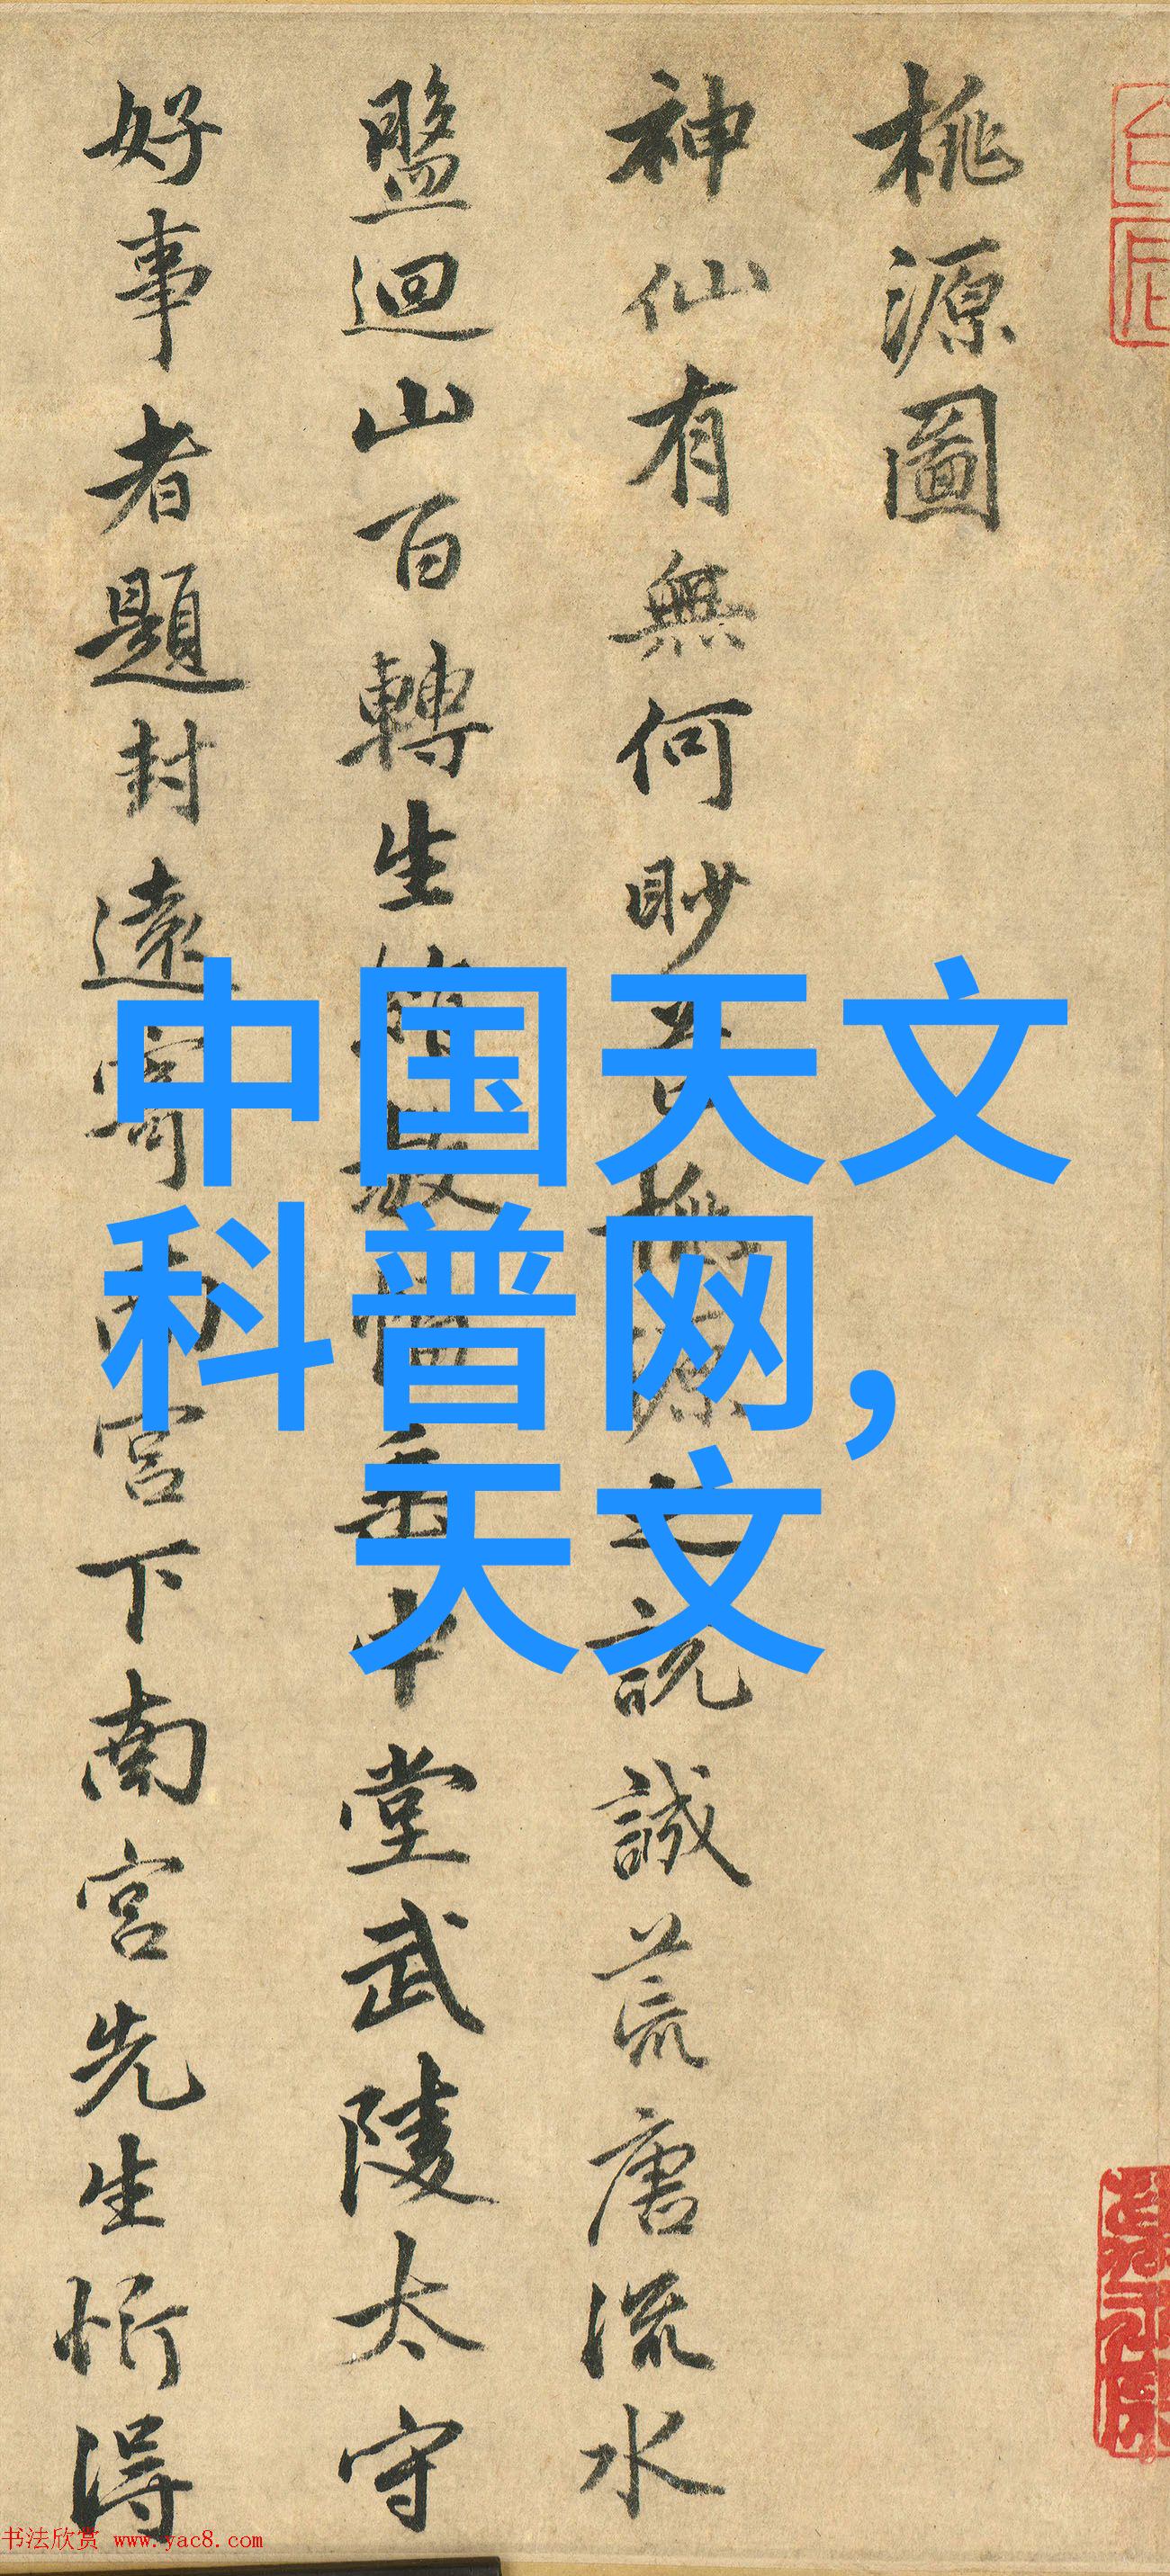 桃源圖
神仙有無何眇芒桃源之說誠荒唐流水
盤迴山百轉生綃數幅垂中堂武陵太守
好事者題封遠寄南宮下南宮先生忻得
中国天文
科普网,
天文
书法欣赏 www.yac8.com